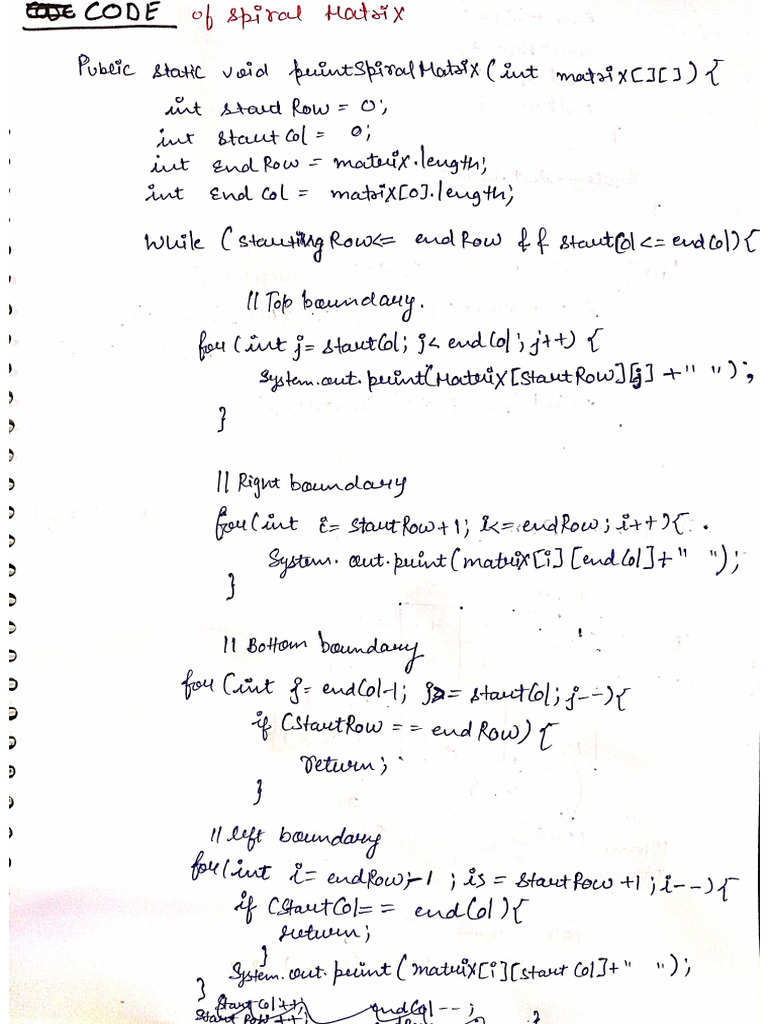 CODE of Spiral Matrix
Public static void printSpiralMatrix(int matrix[][]) {
int start Row = 0;
int start Col = 0;
int end Row = matrix.length;
int End Col = matrix[0].length;
While (starting Row<= end Row && startCol<= endCol){
// Top boundary.
for (int j= startCol; j< endCol; j++) {
System.out.print(Matrix[StartRow][j] +" ");
}
// Right boundary
for(int i= startRow+1; i<= endRow; i++){
System.out.print(matrix[i][endCol]+" ");
}
// Bottom boundary
for (int j= endCol-1; j>= startCol; j--){
if (StartRow == endRow) {
return;
}
// left boundary
for(int i= endRow-1 ; i>= startRow +1 ; i--){
if (StartCol== endCol){
return;
}
System.out.print(matrix[i][start Col]+" ");
}
Start Col++; endCol--;
Start Row++;
}